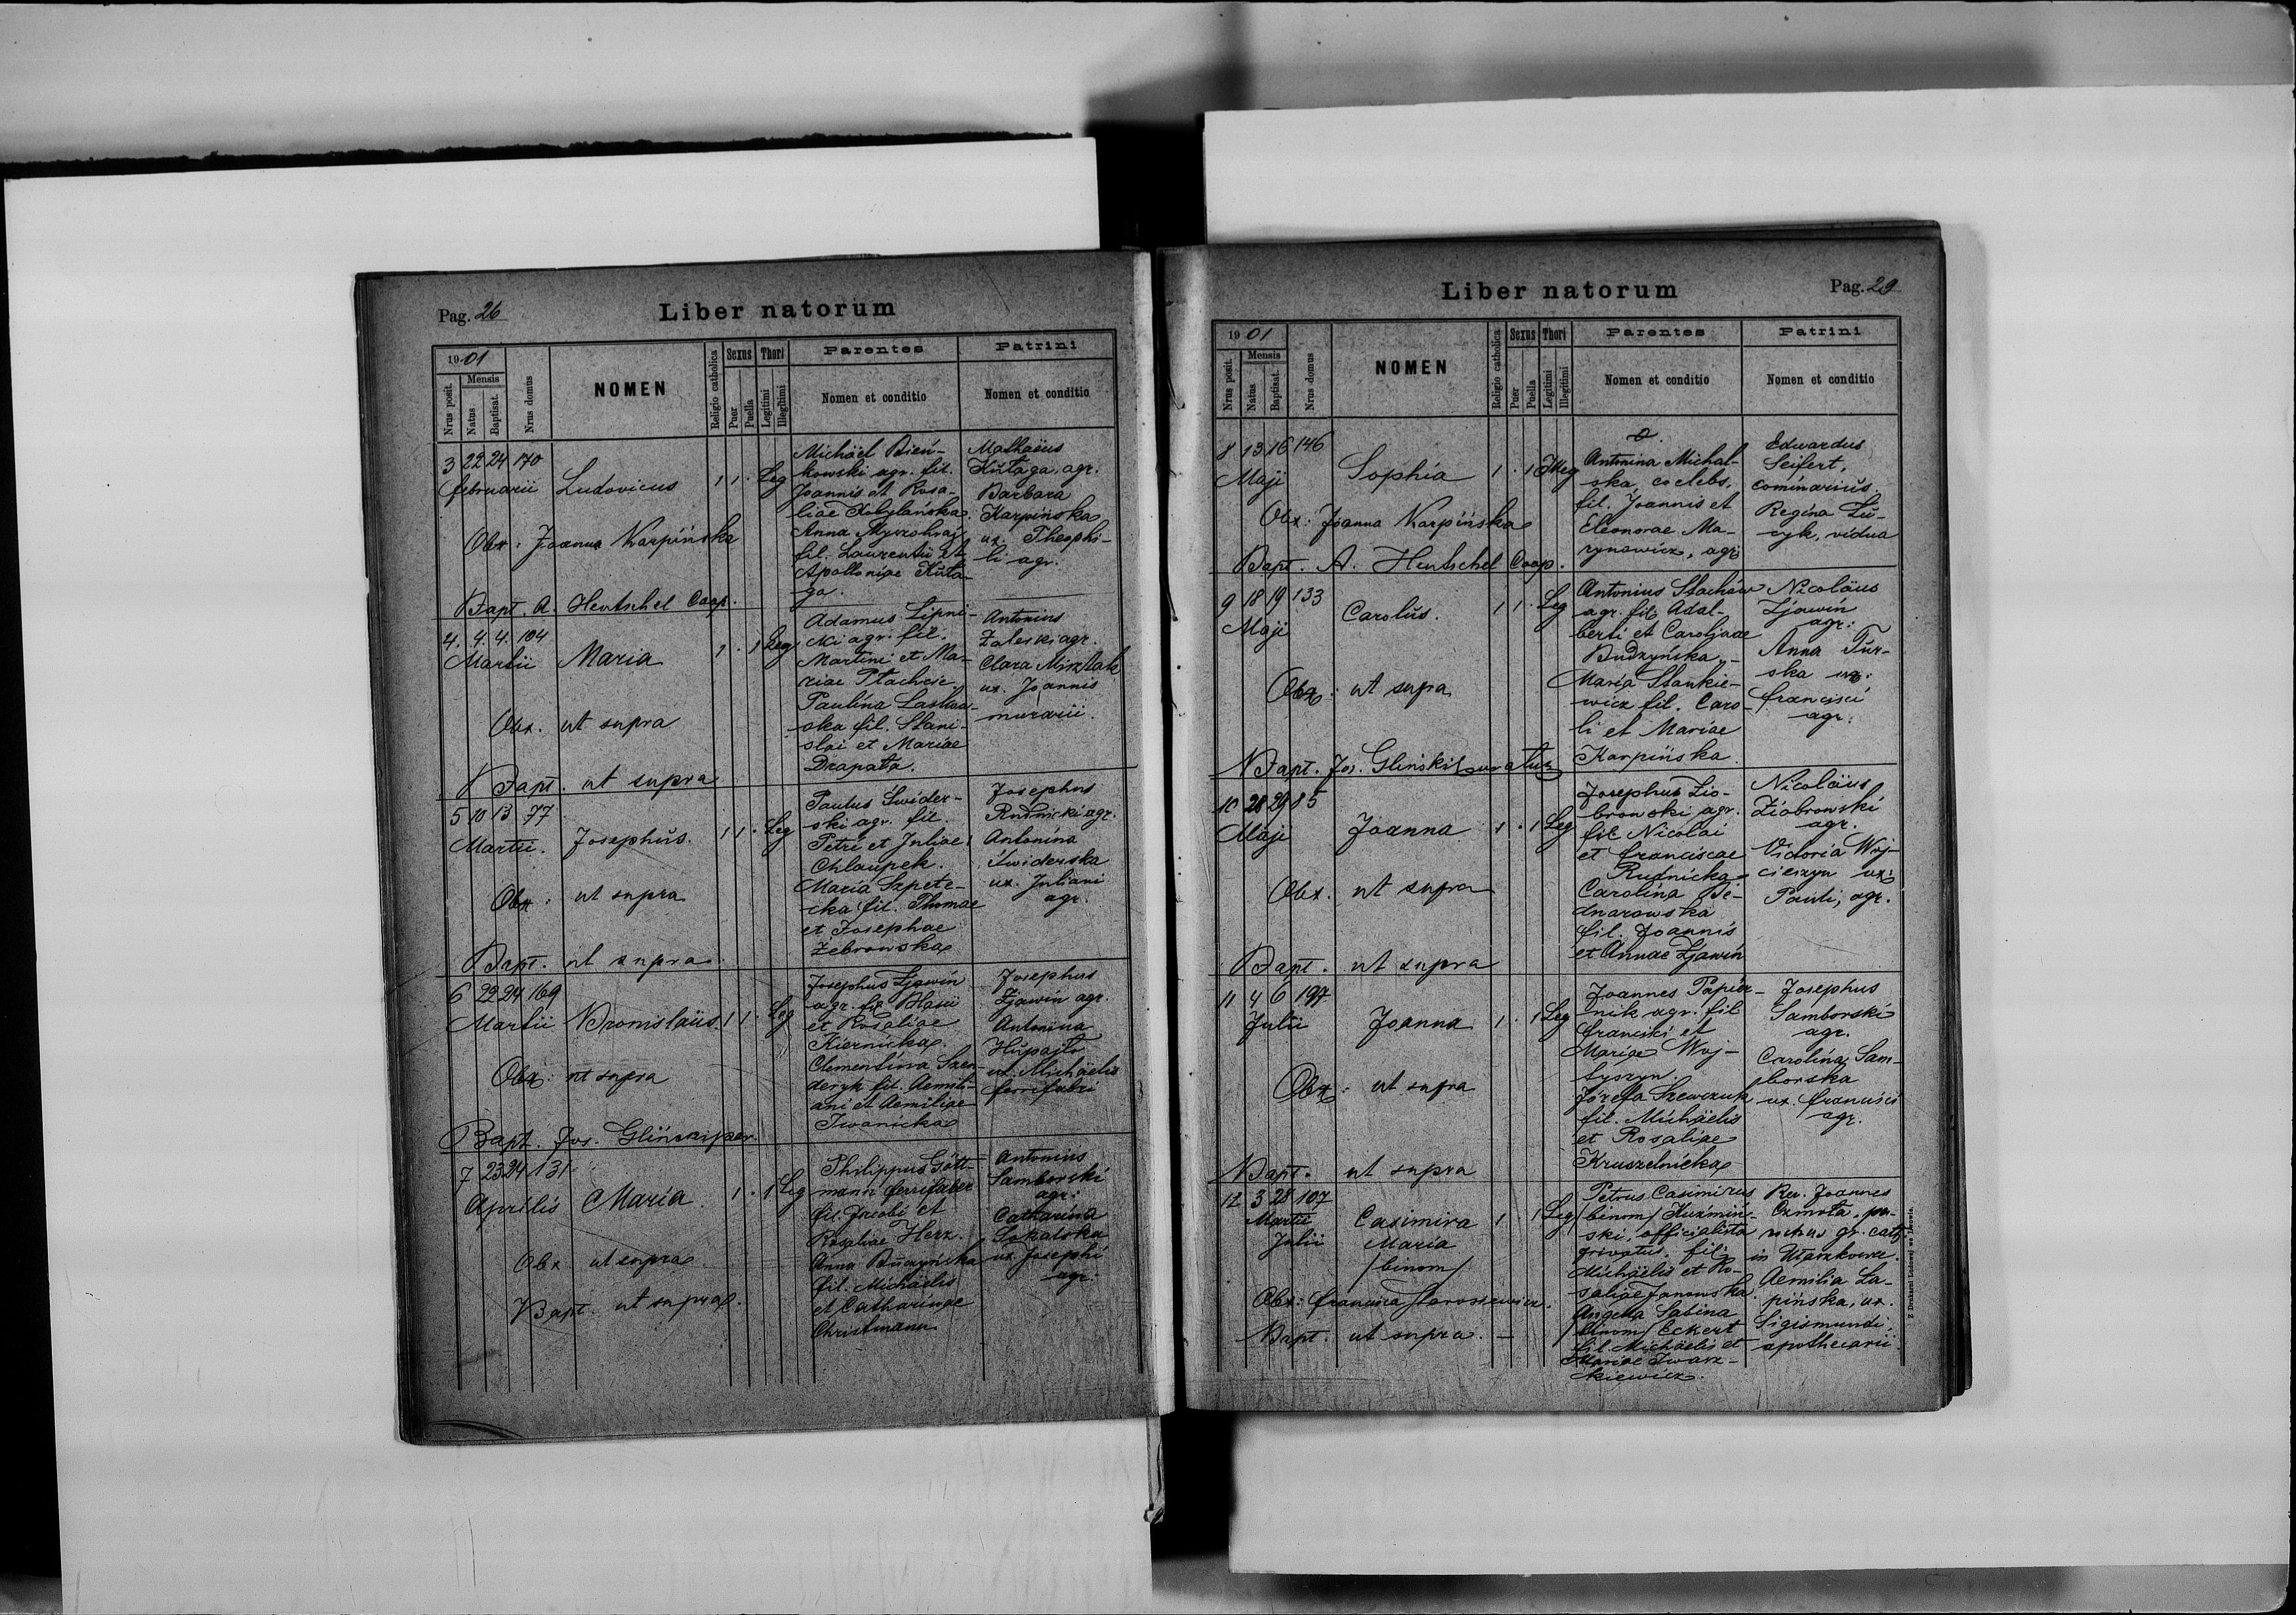 Pag. 26
Liber natorum
1901
Nrus posit.
Mensis
Natus
Baptisat.
Nrus domus
NOMEN
Religio catholica
Sexus
Puer
Puella
Thori
Legitimi
Illegitimi
Parentes
Nomen et conditio
Patrini
Nomen et conditio
3 22 24 170
februarii
Ludovicus
1 1 . Leg
Michäel Bień-
kowski agr. fil.
Joannis et Rosa-
liae Kobylańska.
Anna
fil. Laurentii et
Apolloniae Kuta-
ga.
Mathaeus
Kutaga, agr.
Barbara
Karpińska
ux. Theophi-
li agr.
Obx: Joanna Karpińska
Bapt. A. Hentschel Coop.
4. 4. 4. 104
Martii
Maria
1 . 1 Leg
Adamus Lipni-
cki agr. fil.
Martini et Ma-
riae
Paulina
ska fil. Stani-
slai et Mariae
Drapała.
Antonius
Zaleski agr.
Clara
ux. Joannis
murarii.
Obx. ut supra
Bapt. ut supra
5 10 13 77
Martii.
Josephus.
1 1 . Leg
Paulus Świder-
ski agr. fil.
Petri et Juliae
Chlaupek.
Maria Szpete-
cka fil. Thomae
et Josephae
Żebrowska
Josephus
Rudnicki agr.
Antonina
Świderska
ux. Juliani
agr.
Obx: ut supra
Bapt. ut supra
6 22 24 169
Martii
Bronislaüs
1 1 . Leg
Josephus Zjawin
agr. fil. Blasii
et Rosaliae
Kiernicka.
Clementina Szen-
deryk fil. Aemili-
ani et Aemiliae
Iwanicka
Josephus
Zjawin agr.
Antonina
Hupajło
ux. Michäelis
ferrifabri
Obx: ut supra
Bapt. Jos. Gliński
7 23 24 131
Aprilis
Maria
1 . 1 Leg
Philippus Gött-
mann ferrifaber
fil. Jacobi et
Rosaliae Herz.
Anna Buczyńska
fil. Michäelis
et Catharinae
Christmann
Antonius
Samborski
agr.
Catharina
Sokalska
ux. Josephi
agr:
Obx ut supra
Bapt. ut supra.
Liber natorum
Pag. 29
1901
Nrus posit.
Mensis
Natus
Baptisat.
Nrus domus
NOMEN
Religio catholica
Sexus
Puer
Puella
Thori
Legitimi
Illegitimi
Parentes
Nomen et conditio
Patrini
Nomen et conditio
8 13 16 146
Maji
Sophia
1 . 1 Illeg
Antonina Michal-
ska, coelebs,
fil. Joannis et
Eleonorae Ma-
rynowicz, agr:
Edwardus
Seifert,
cominarius.
Regina Łu-
cyk, vidua
Obx: Joanna Karpińska
Bapt. A. Hentschel Coop.
9 18 19 133
Maji
Carolus.
1 1 . Leg
Antonius Stachów
agr. fil. Adal-
berti et Carolinae
Budzyńska.-
Maria Stankie-
wicz fil. Caro-
li et Mariae
Karpińska.
Nicoläus
Zjawin
agr:
Anna Tur-
ska ux.
francisci
agr:
Obx: ut supra
Bapt. Jos. Gliński curatus
10 28 29 85
Maji
Joanna
1 . 1 Leg
Josephus Zio-
browski agr.
fil. Nicolai
et franciscae
Rudnicka
Carolina Be-
dnarowska
fil. Joannis
et Annae Zjawin
Nicoläus
Ziobrowski
agr.
Victoria Woj-
cieszyn ux:
Pauli, agr.
Obx. ut supra
Bapt. ut supra
11 4 6 197
Julii
Joanna
1 . 1 Leg
Joannes Papier-
nik agr. fil
francisci et
Mariae Woj-
tyszyn.
Józefa Szewczuk
fil. Michäelis
et Rosaliae
Kruszelnicka
Josephus
Samborski
agr.
Carolina Sam-
borska
ux. francisci
agr.
Obx: ut supra
Bapt. ut supra
12 3 28 107
Martii
Julii
Casimira
Maria
/binom/
1 . 1 Leg
Petrus Casimirus
/binom/ Kuźmiń-
ski, officialista
privatus, fil.
Michäelis et Ro-
saliae Janowska.
Angela Sabina
/binom/ Eckert
fil. Michäelis et
Mariae Iwasz-
kiewicz.
Rev. Joannes
pa-
rochus gr. cath.
in Ułaszkowce.
Aemilia Ła-
pińska, ux.
Sigismundi,
apothecarii
Obx: francisca Jaroszewicz.
Bapt. ut supra. -
Z Drukarni Ludowej we Lwowie.